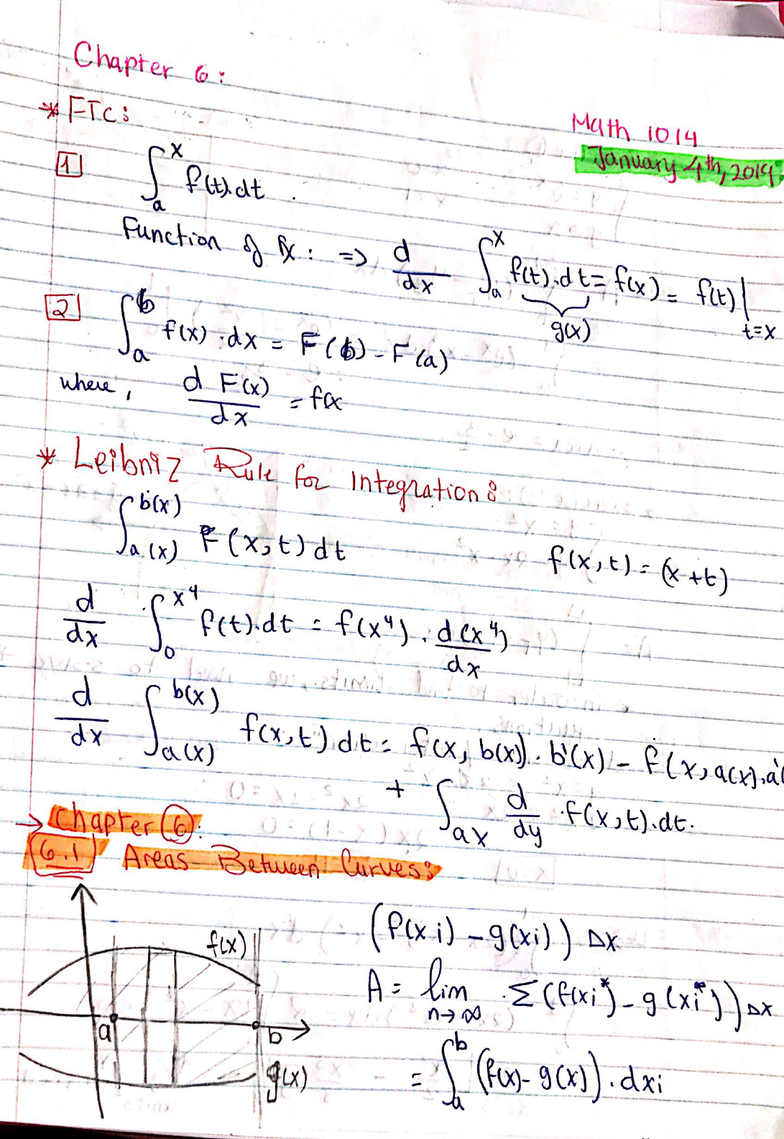 Chapter 6:
* FTC:
Math 1014
January 4th, 2019
1 ∫ₐˣ f(t).dt.
Function of x: => d/dx ∫ₐˣ f(t).dt = f(x) = f(t)|t=x
g(x)
2 ∫ₐᵇ f(x).dx = F(b) - F(a)
where, d F(x)/dx = f(x
* Leibniz Rule for Integration:
∫a(x)^b(x) F(x,t) dt f(x,t) = (x+t)
d/dx ∫₀^x⁴ f(t).dt = f(x⁴). d(x⁴)/dx
d/dx ∫a(x)^b(x) f(x,t) dt = f(x, b(x)). b'(x) - f(x, a(x).a'(
+ ∫ax d/dy .f(x,t).dt.
→ Chapter 6:
6.1 Areas Between Curves:
f(x)
a
b
g(x)
(f(xi) - g(xi)) Δx
A = lim n→∞ . Σ(f(xi*) - g(xi*)) Δx
= ∫ₐᵇ (f(x) - g(x)).dxi